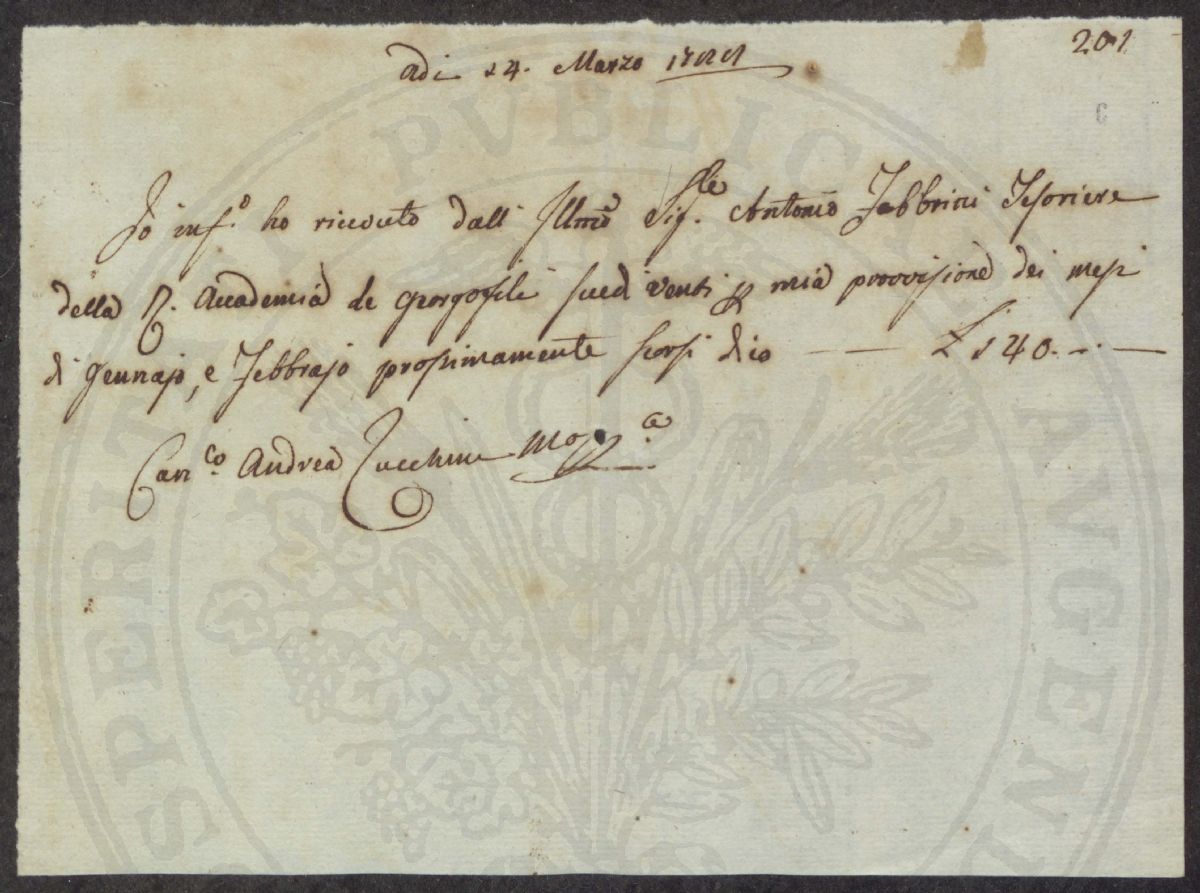 201
C
Adi 14. Marzo 1788
Io inf.º ho riceuto dall' Illmo Sig.re Antonio Fabbrini Tesoriere
della R. Accademia de Georgofili scudi venti p mia provvisione dei mesi
di Gennajo, e Febbrajo prossimamente scorsi dico — — £ 140. — . —
Can.co Andrea Zucchini Mo pp.a
PROSPERITATI PVBLICAE AVGENDAE